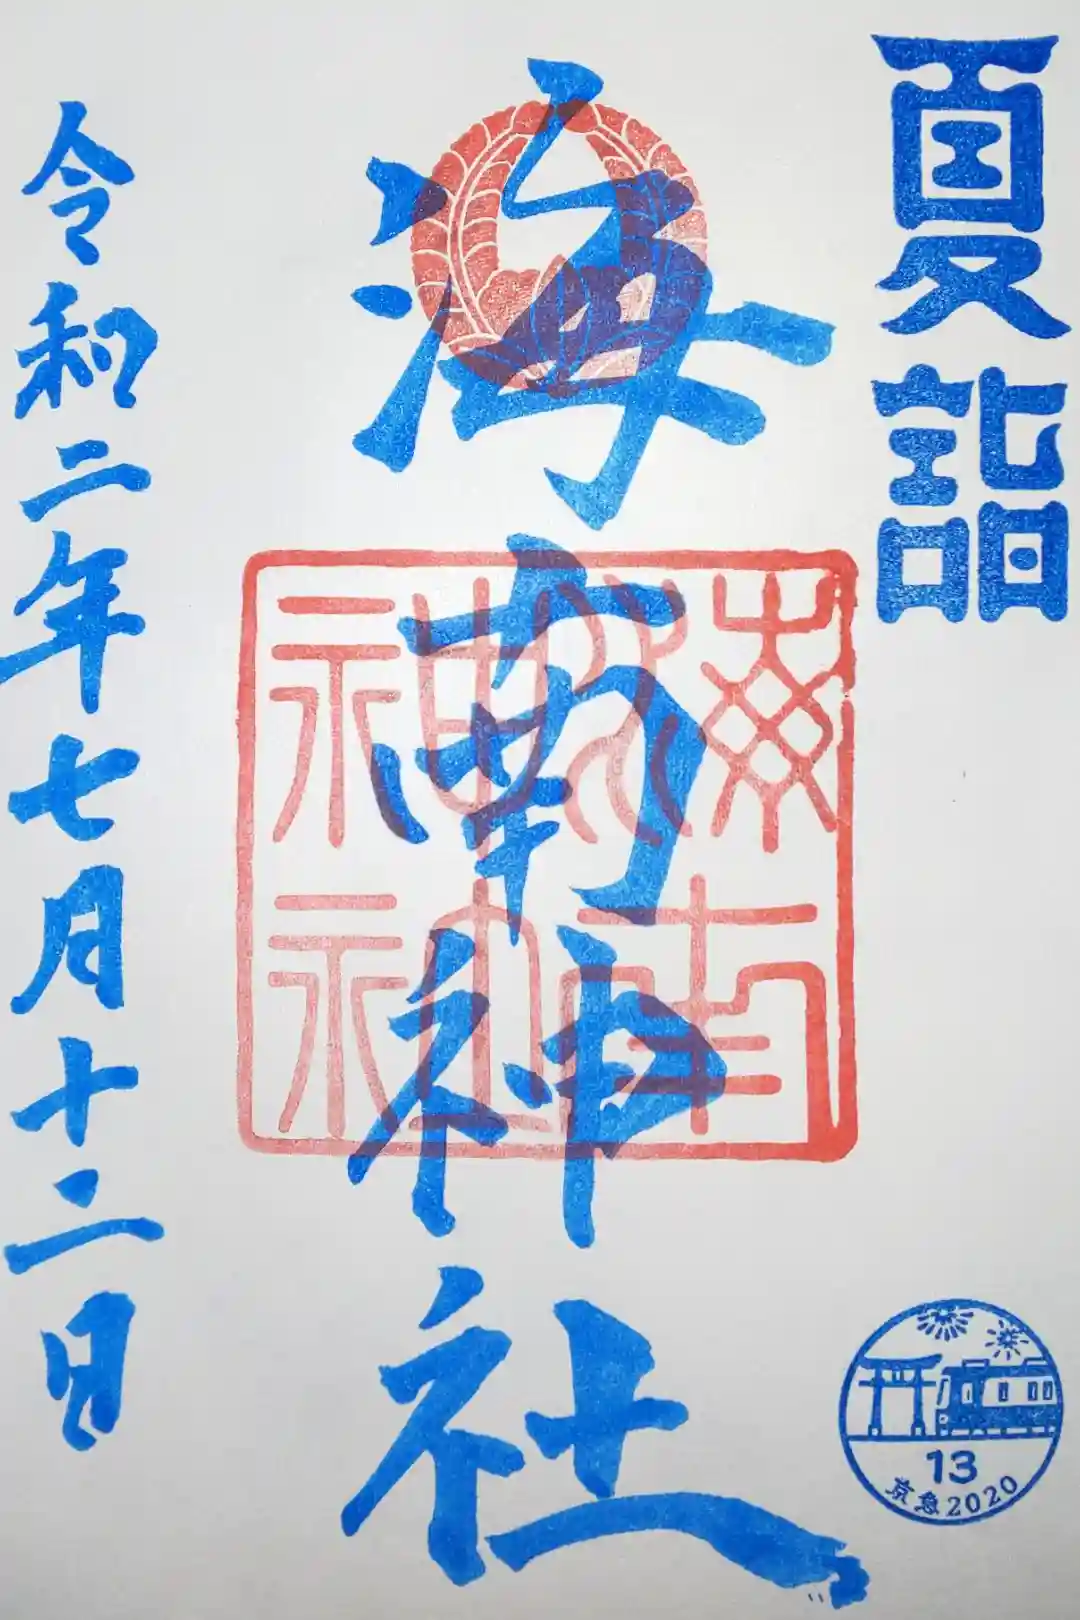 夏詣
海南神社
海南神社
令和二年七月十二日
13
京急2020